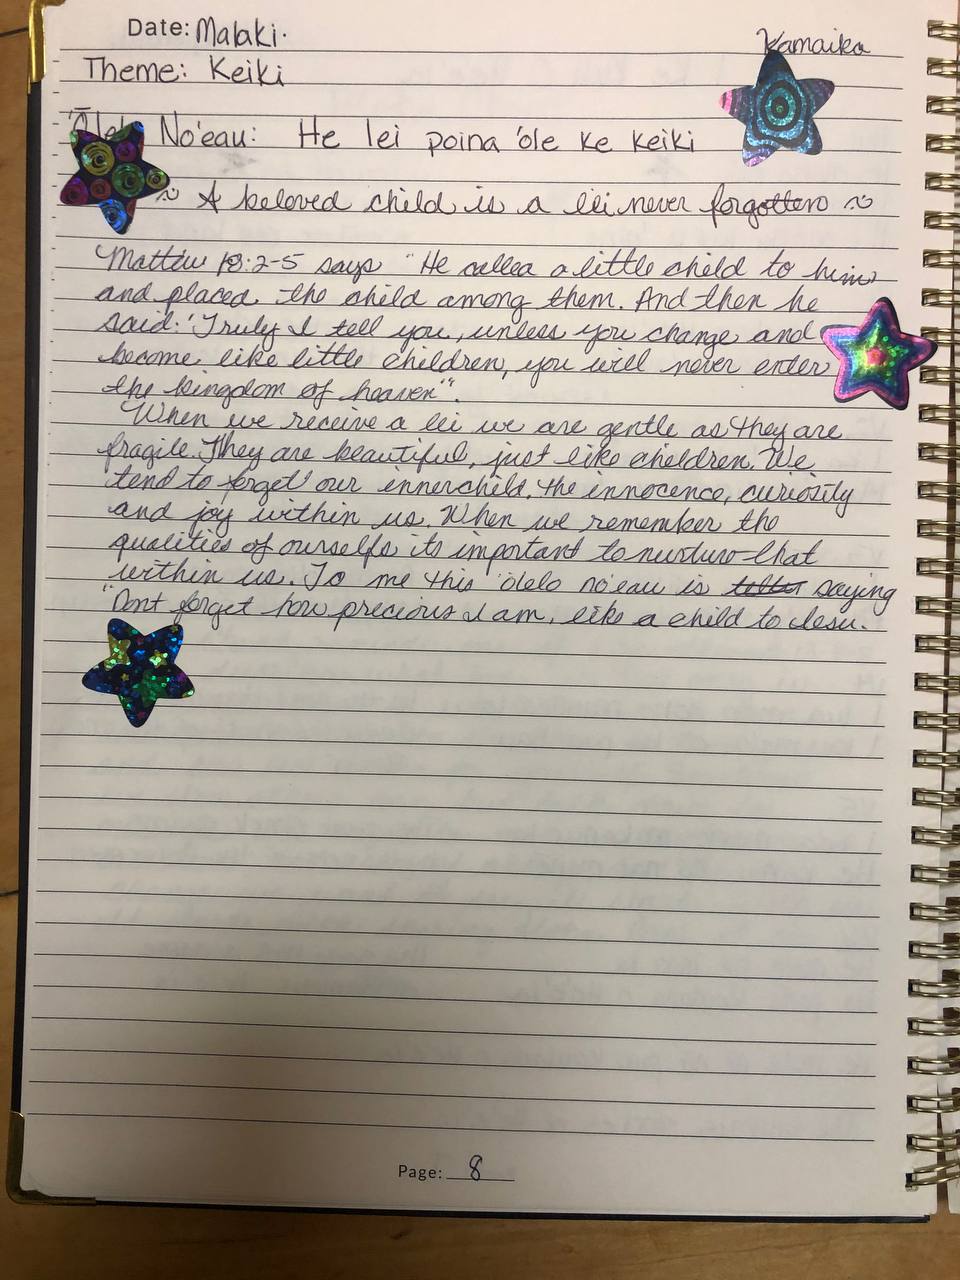 Date: Malaki.
Kamaika
Theme: Keiki
ʻŌlelo No'eau: He lei poina 'ole ke keiki
~ A beloved child is a lei never forgotten ~
Mattew 18:2-5 says "He called a little child to him
and placed the child among them. And then he
said: 'Truly I tell you, unless you change and
become like little children, you will never enter
the kingdom of heaven'".
When we receive a lei we are gentle as they are
fragile. They are beautiful, just like children. We
tend to forget our innerchild, the innocence, curiosity
and joy within us. When we remember the
qualities of ourselfs its important to nurture that
within us. To me this 'ōlelo no'eau is saying
"Dont forget how precious I am, like a child to Iesu.
Page: 8